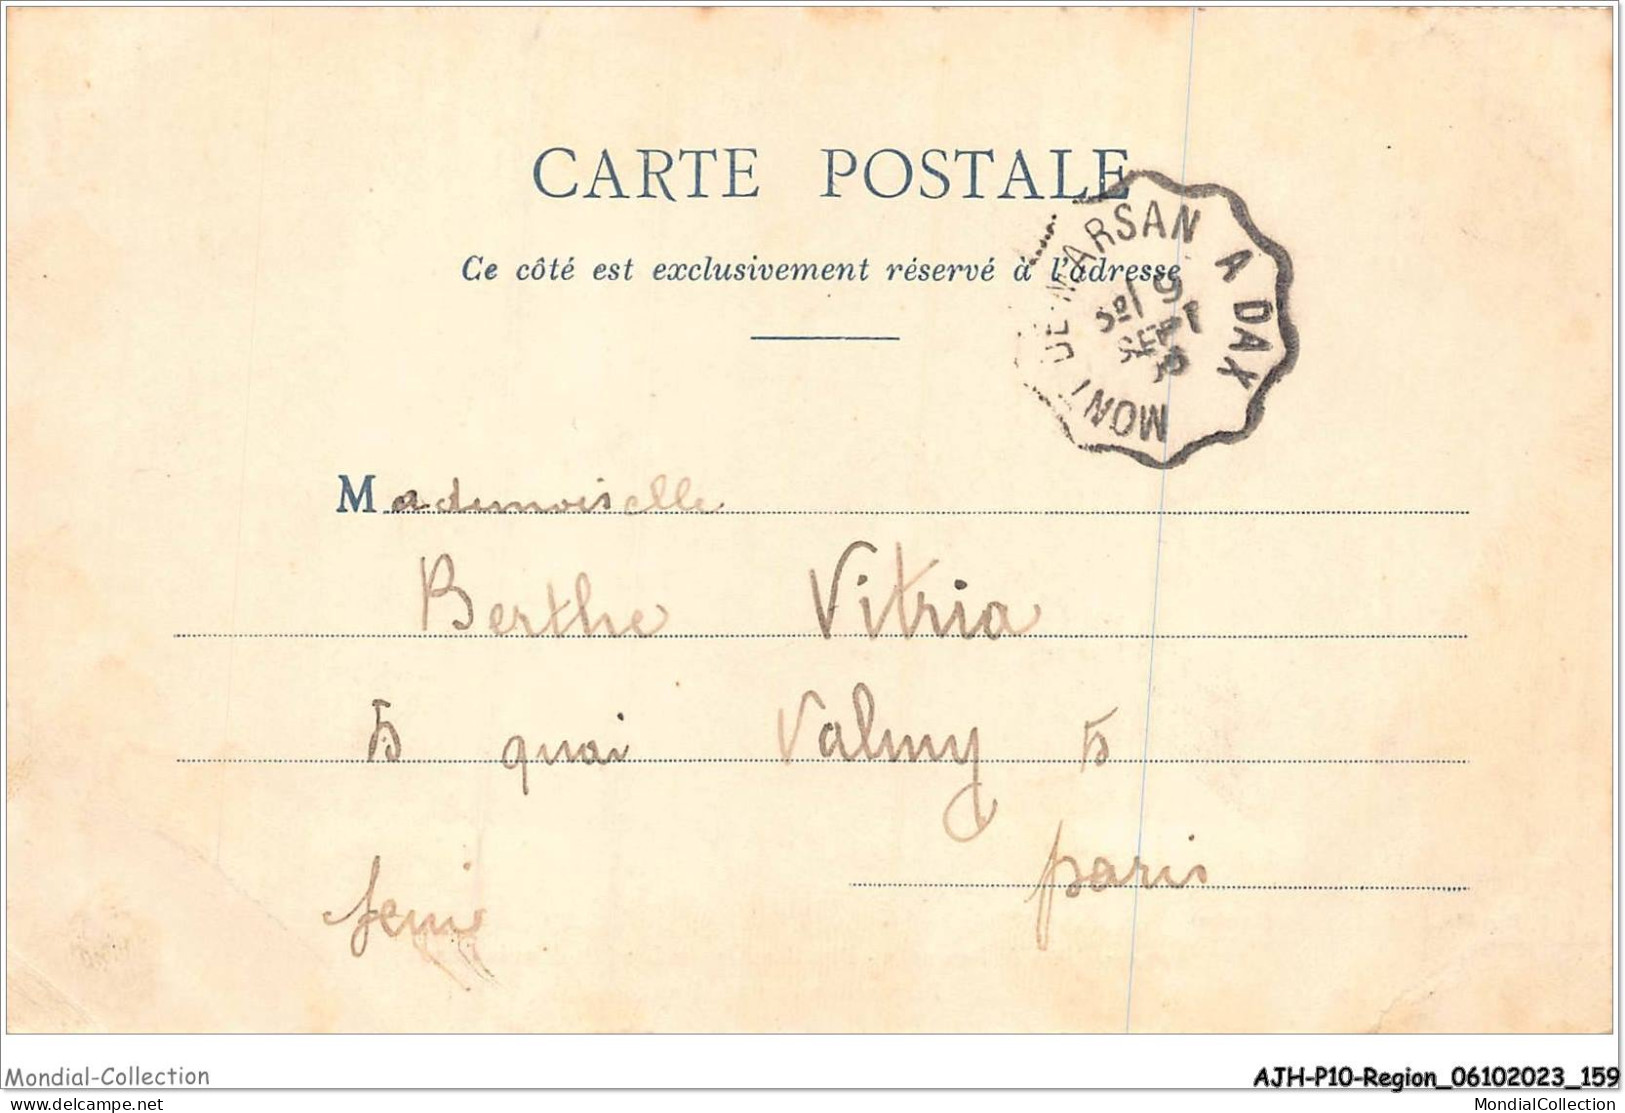 CARTE POSTALE
Ce côté est exclusivement réservé à l'adresse
MONT DE MARSAN A DAX
SEPT
Mademoiselle
Berthe Vitria
5 quai Valmy 5
paris
Mondial-Collection
AJH-P10-Region_06102023_159
www.delcampe.net
MondialCollection